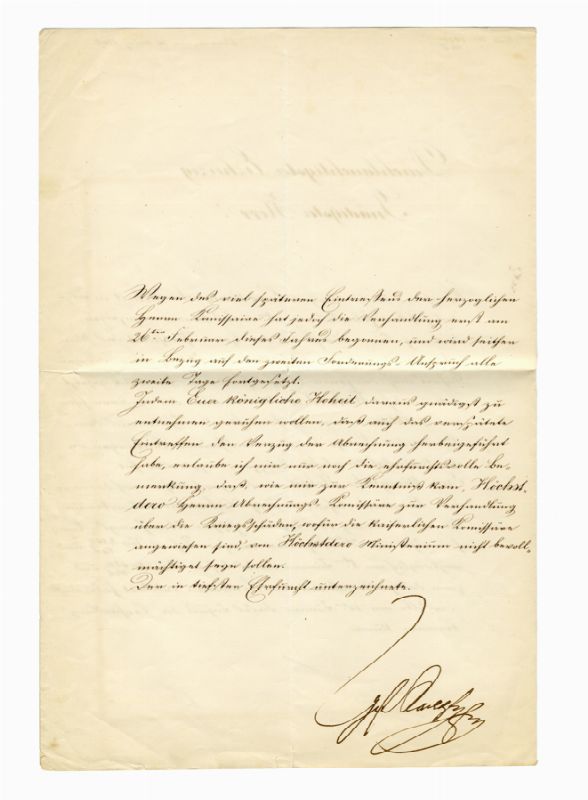 Wegen des viel späteren Eintreffens der herzoglichen
Herren Komissaire hat jedoch die Verhandlung erst am
26ten Februar dieses Jahres begonnen, und wird seither
in Bezug auf den zweiten Forderungs-Anspruch alle
zweite Tage fortgesetzt.
Indem Euer königliche Hoheit daraus gnädigst zu
entnehmen geruhen wollen, daß auch das verspätete
Eintreffen den Verzug der Abrechnung herbeigeführt
habe, erlaube ich mir nur noch die ehrfurchtsvolle Be-
merkung, daß, wie mir zur Kenntniß kam, Höchst-
dero Herren Abrechnungs Komissäre zur Verhandlung
über die Kriegsschäden, wofür die kaiserlichen Komissäre
angewiesen sind, von Höchstdero Ministerium nicht bevoll-
mächtiget seyn sollen.
Der in tiefsten Ehrfurcht unterzeichnete.